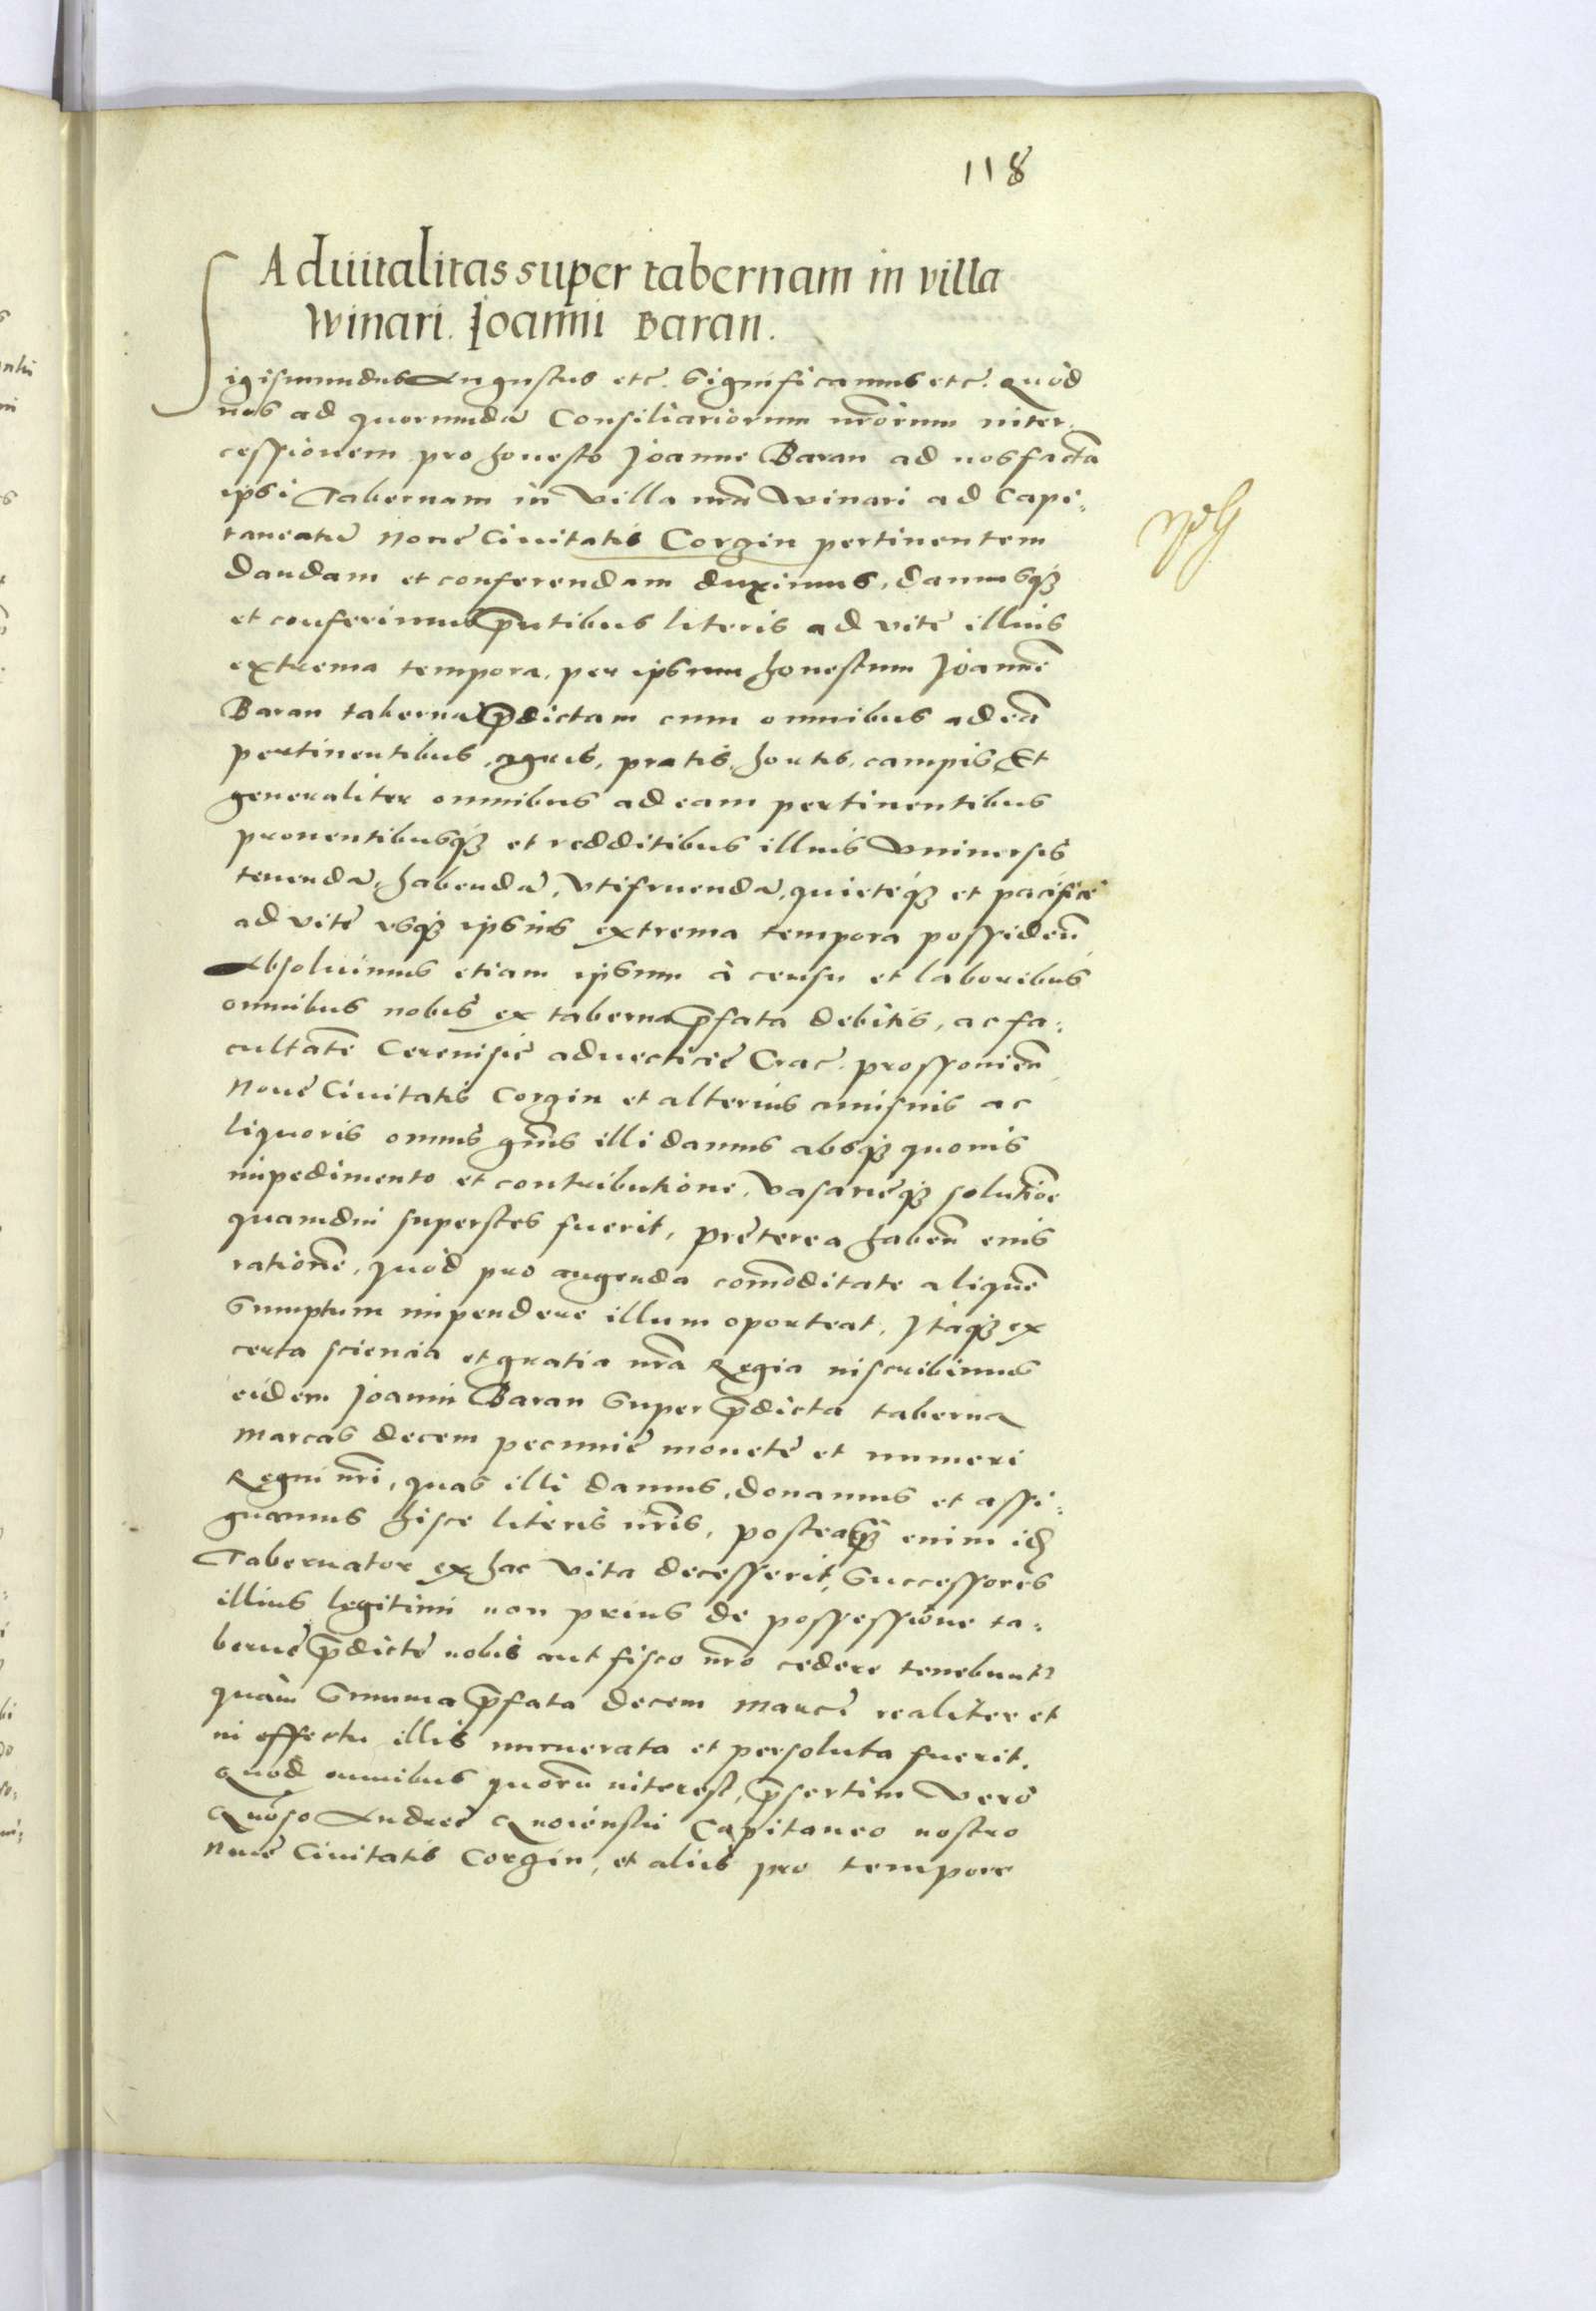 118
Advitalitas super tabernam in villa
Winari. Joanni Baran.
Sigismundus Augustus etc. Significamus etc. Quòd
nos ad quorundã Consiliariorum nrõrum inter-
cessionem pro honesto Joanne Baran ad nos factã
ipsi Tabernam in Villa nrã Winari ad Capi-
taneatũ Noue Ciuitatis Corzin pertinentem
dandam et conferendam duximus, damusq3
et conferimus pñtibus literis ad vite illius
extrema tempora, per ipsum honestum Joannẽ
Baran tabernã p̃dictam cum omnibus ad eã
pertinentibus, agris, pratis, hortis, campis Et
generaliter omnibus ad eam pertinentibus
prouentibusq3 et redditibus illius Vniuersis
tenendã, habendã, Vtifruendã, quieteq3 et pacifice
ad vite vsq3 ipsius extrema tempora possideñ
Absoluimus etiam ipsum à censu et laboribus
omnibus nobis ex taberna p̃fata debitis, ac fa-
cultatẽ Cereuisie aduecticie Crac. prossouieñ
Noue Ciuitatis Corzin et alterius cuiusuis ac
liquoris omnis gñis illi damus absq3 quouis
impedimento et contributione, Vasarieq3 solutiõe
quamdiu superstes fuerit, preterea habeñ eius
rationẽ, quòd pro augenda comõditate aliquẽ
Sumptum impendere illum oporteat, Itaq3 ex
certa sciencia et gratia nrã Regia inscribimus
eidem Joanni Baran Super p̃dicta taberna
Marcas decem pecunie monete et numeri
Regni nrĩ, quas illi damus, donamus et assi-
gnamus hisce literis nrĩs, posteaq̃3 enim idẽ
Tabernator ex hac Vita decesserit, Successores
illius legitimi non prius de possessione ta-
berne p̃dicte nobis aut fisco nrõ cedere tenebunt2
quàm Summa p̃fata decem Marcẽ realiter et
in effectu illis numerata et persoluta fuerit.
Quod omnibus quorũ interest, p̃sertim Verò
Gñoso Andree
Capitaneo nostro
Noue Ciuitatis Corzin, et aliis pro tempore